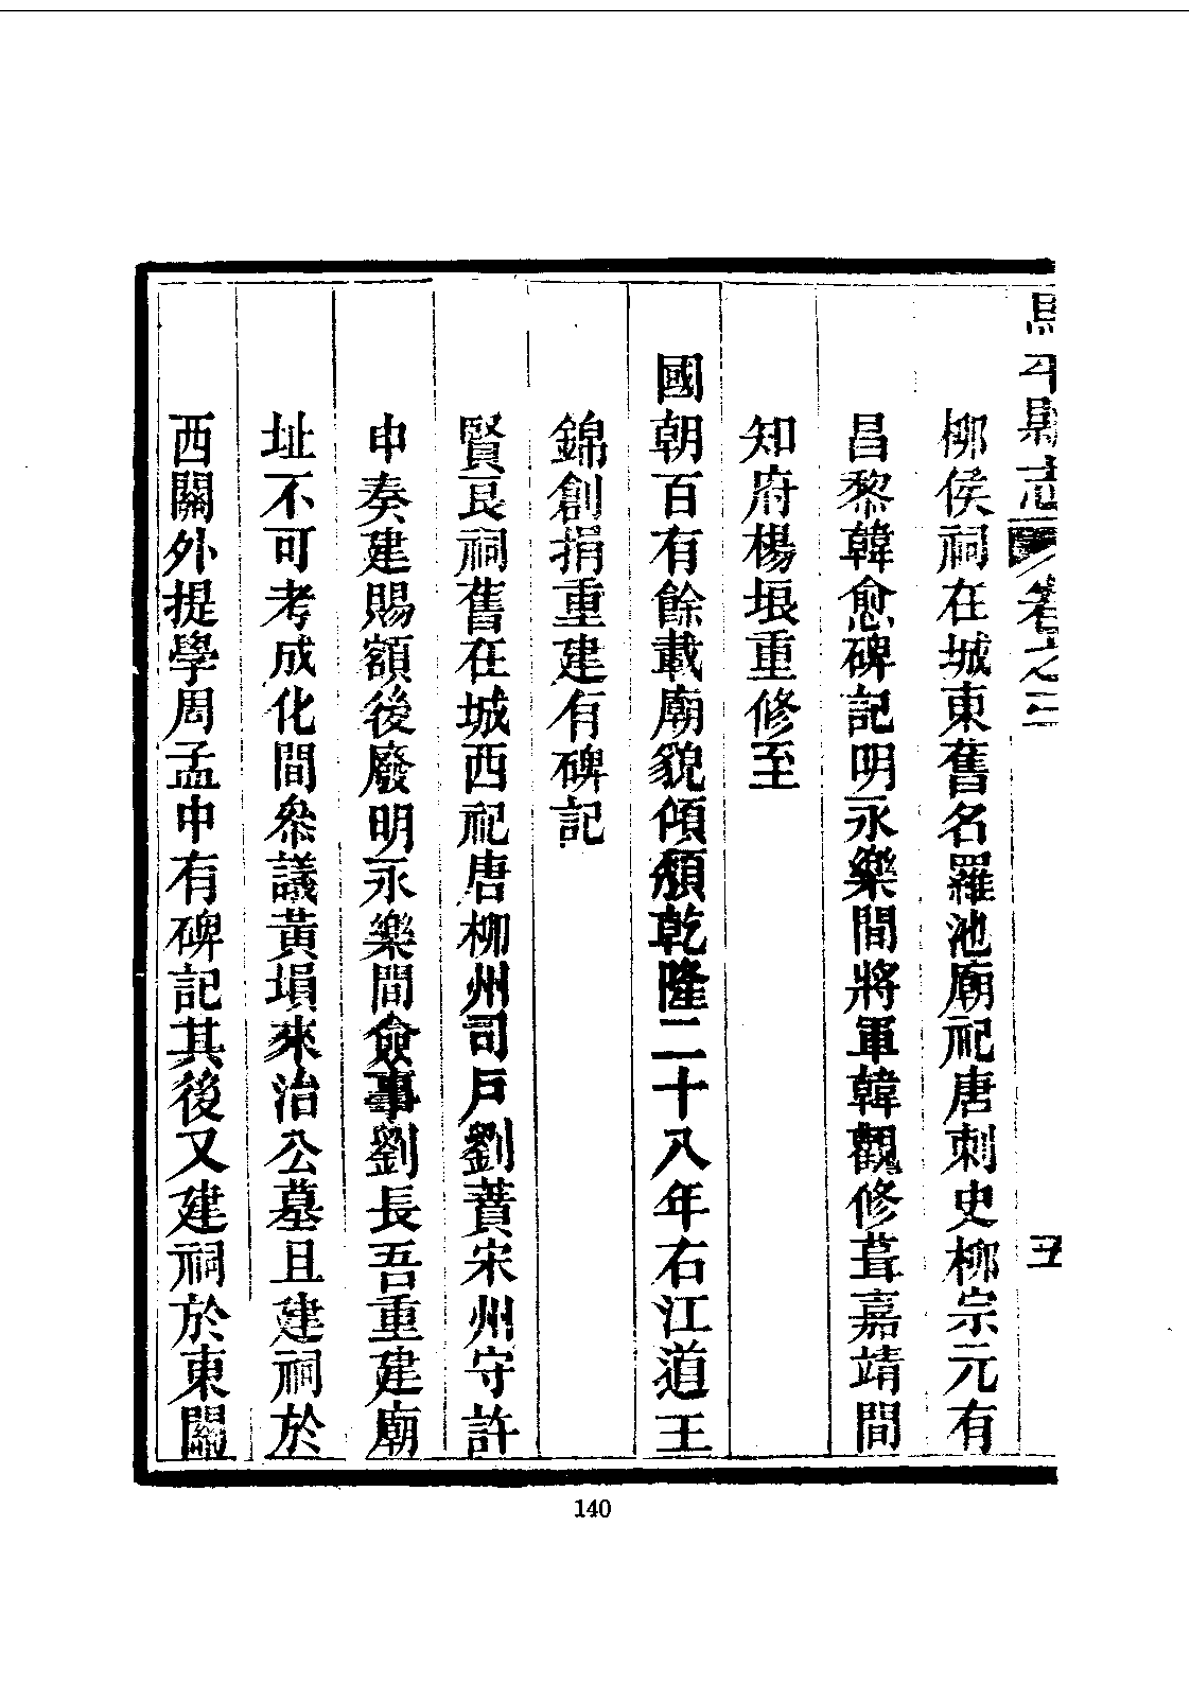 馬平縣志 卷之三 五
柳侯祠在城東舊名羅池廟祀唐刺史柳宗元有
昌黎韓愈碑記明永樂間將軍韓觀修葺嘉靖間
知府楊垠重修至
國朝百有餘載廟貌傾頽乾隆二十八年右江道王
錦創捐重建有碑記
賢良祠舊在城西祀唐柳州司戶劉蕡宋州守許
申奏建賜額後廢明永樂間僉事劉長吾重建廟
址不可考成化間叅議黃塤來治公墓且建祠於
西關外提學周孟中有碑記其後又建祠於東關
140